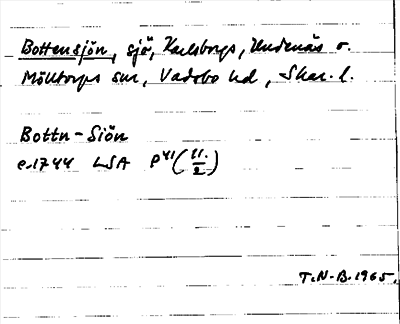 Bottensjön, sjö, Karlsborgs, Undenäs o.
Mölltorps snr, Vadsbo hd, Skar. l.
Bottn-Siön
c.1744 LSA P41 (11./2)
T.N-B. 1965.